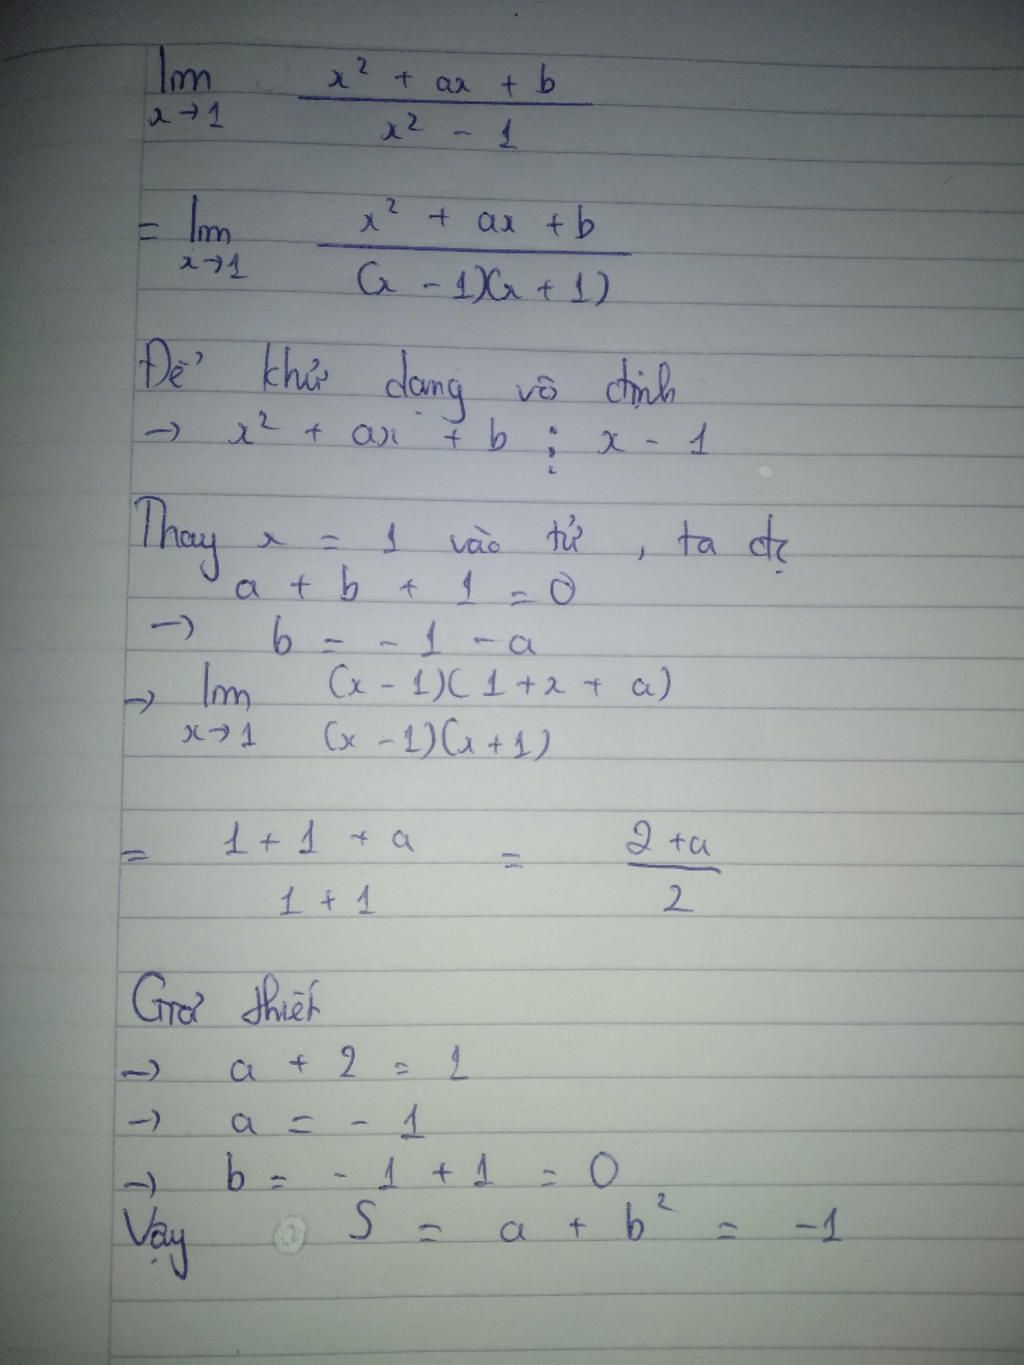 lim x² + ax + b
x→1 x² - 1
= lim x² + ax + b
x→1 (x - 1)(x + 1)
Để khử dạng vô định
→ x² + ax + b ⋮ x - 1
Thay x = 1 vào tử, ta đc
a + b + 1 = 0
→ b = - 1 - a
→ lim (x - 1)(1 + x + a)
x→1 (x - 1)(x + 1)
= 1 + 1 + a = 2 + a
1 + 1 2
Giả thiết
→ a + 2 = 1
→ a = - 1
→ b = - 1 + 1 = 0
Vậy S = a + b² = -1